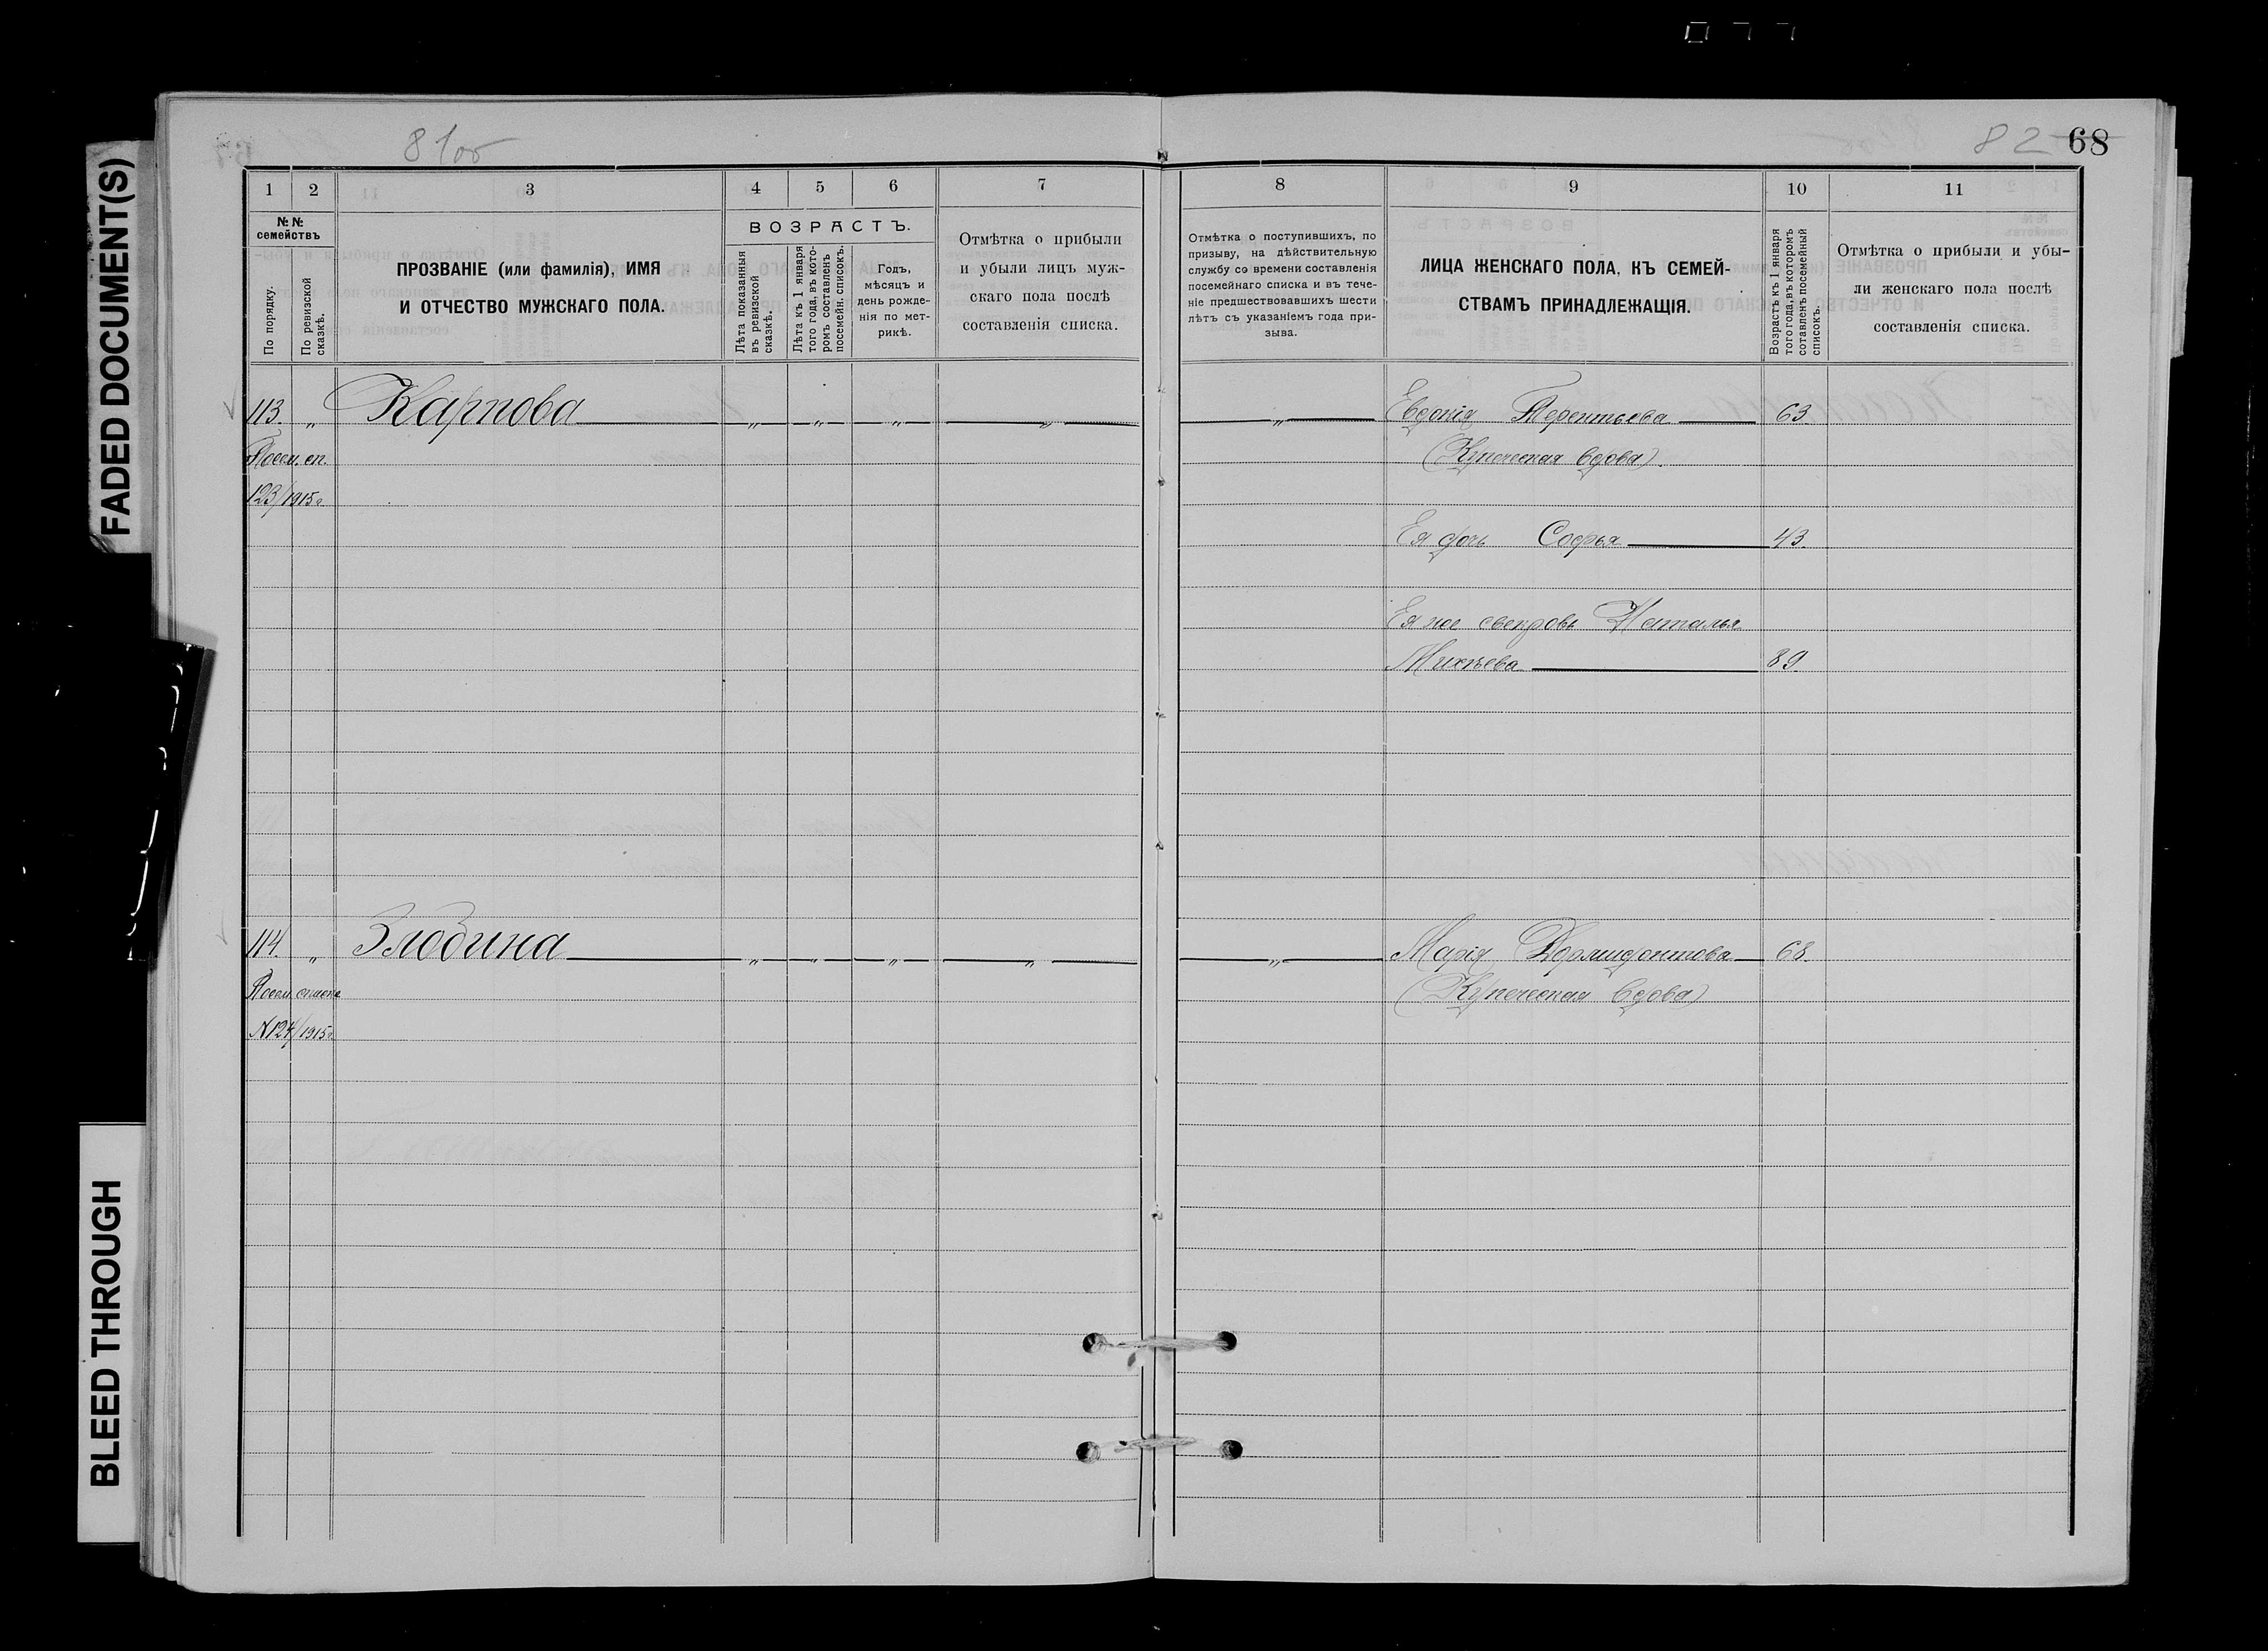 077
FADED DOCUMENT(S)
BLEED THROUGH
81об
82 68
1 2 3 4 5 6 7
№№ семействъ
По порядку.
По ревизской сказкѣ.
ПРОЗВАНІЕ (или фамилія), ИМЯ
И ОТЧЕСТВО МУЖСКАГО ПОЛА.
ВОЗРАСТЪ.
Лѣта показанныя
въ ревизской
сказкѣ.
Лѣта къ 1 января
того года, въ кото-
ромъ составленъ
посемейн. списокъ.
Годъ,
мѣсяцъ и
день рожде-
нія по мет-
рикѣ.
Отмѣтка о прибыли
и убыли лицъ муж-
скаго пола послѣ
составленія списка.
8 9 10 11
Отмѣтка о поступившихъ, по
призыву, на дѣйствительную
службу со времени составленія
посемейнаго списка и въ тече-
ніе предшествовавшихъ шести
лѣтъ съ указаніемъ года при-
зыва.
ЛИЦА ЖЕНСКАГО ПОЛА, КЪ СЕМЕЙ-
СТВАМЪ ПРИНАДЛЕЖАЩІЯ.
Возрастъ къ 1 января
того года, въ которомъ
сотавленъ посемейный
списокъ.
Отмѣтка о прибыли и убы-
ли женскаго пола послѣ
составленія списка.
113. „ Карпова „ „ „ „ „ Евдокія Терентьева 63.
Посем. сп. (Купеческая вдова).
123/1915г.
Ея дочь Софья 43.
Ея же свекровь Наталья
Михѣева 89
114. „ Злобина „ „ „ „ „ Марія Дормидонтова 68.
Посем. списка (Купеческая вдова)
№124/1915г.